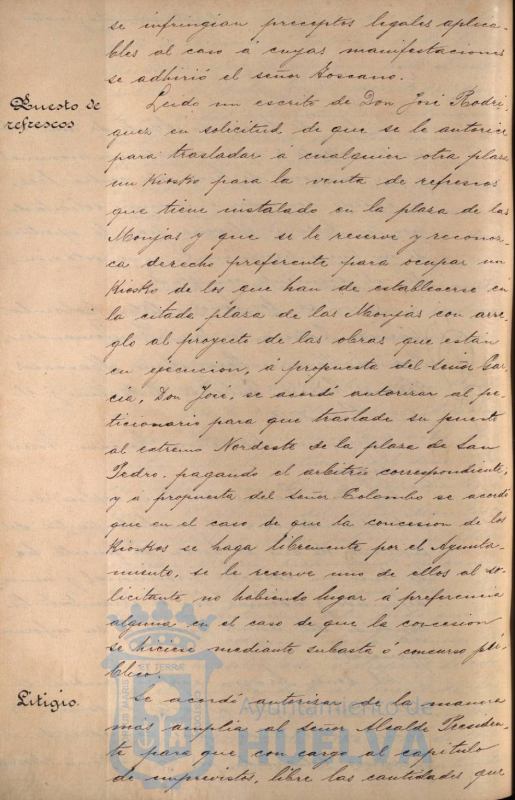 se infringian preceptos legales aplica-
bles al caso á cuyas manifestaciones
se adhirió el señor Toscano.
Puesto de
refrescos
Leido un escrito de Don José Rodri-
guez en solicitud de que se le autorice
para trasladar á cualquier otra plaza
un Kiosko para la venta de refrescos
que tiene instalado en la plaza de las
Monjas y que se le reserve y reconoz-
ca derecho preferente para ocupar un
Kiosko de los que han de establecerse en
la citada plaza de las Monjas con arre-
glo al proyecto de las obras que están
en ejecucion, á propuesta del señor Gar-
cia, Don José, se acordó autorizar al pe-
ticionario para que traslade su puesto
al extremo Nordeste de la plaza de San
Pedro, pagando el arbitrio correspondiente,
y á propuesta del señor Colombo se acordó
que en el caso de que la concesion de los
Kioskos se haga libremente por el Ayunta-
miento, se le reserve uno de ellos al so-
licitante no habiendo lugar á preferencia
alguna en el caso de que la concesion
se hiciese mediante subasta ó concurso pú-
blico.
Litigio.
Se acordó autorizar de la manera
mas amplia al señor Alcalde Presiden-
te para que con cargo al capitulo
de imprevistos, libre las cantidades que
Ayuntamiento de
HUELVA